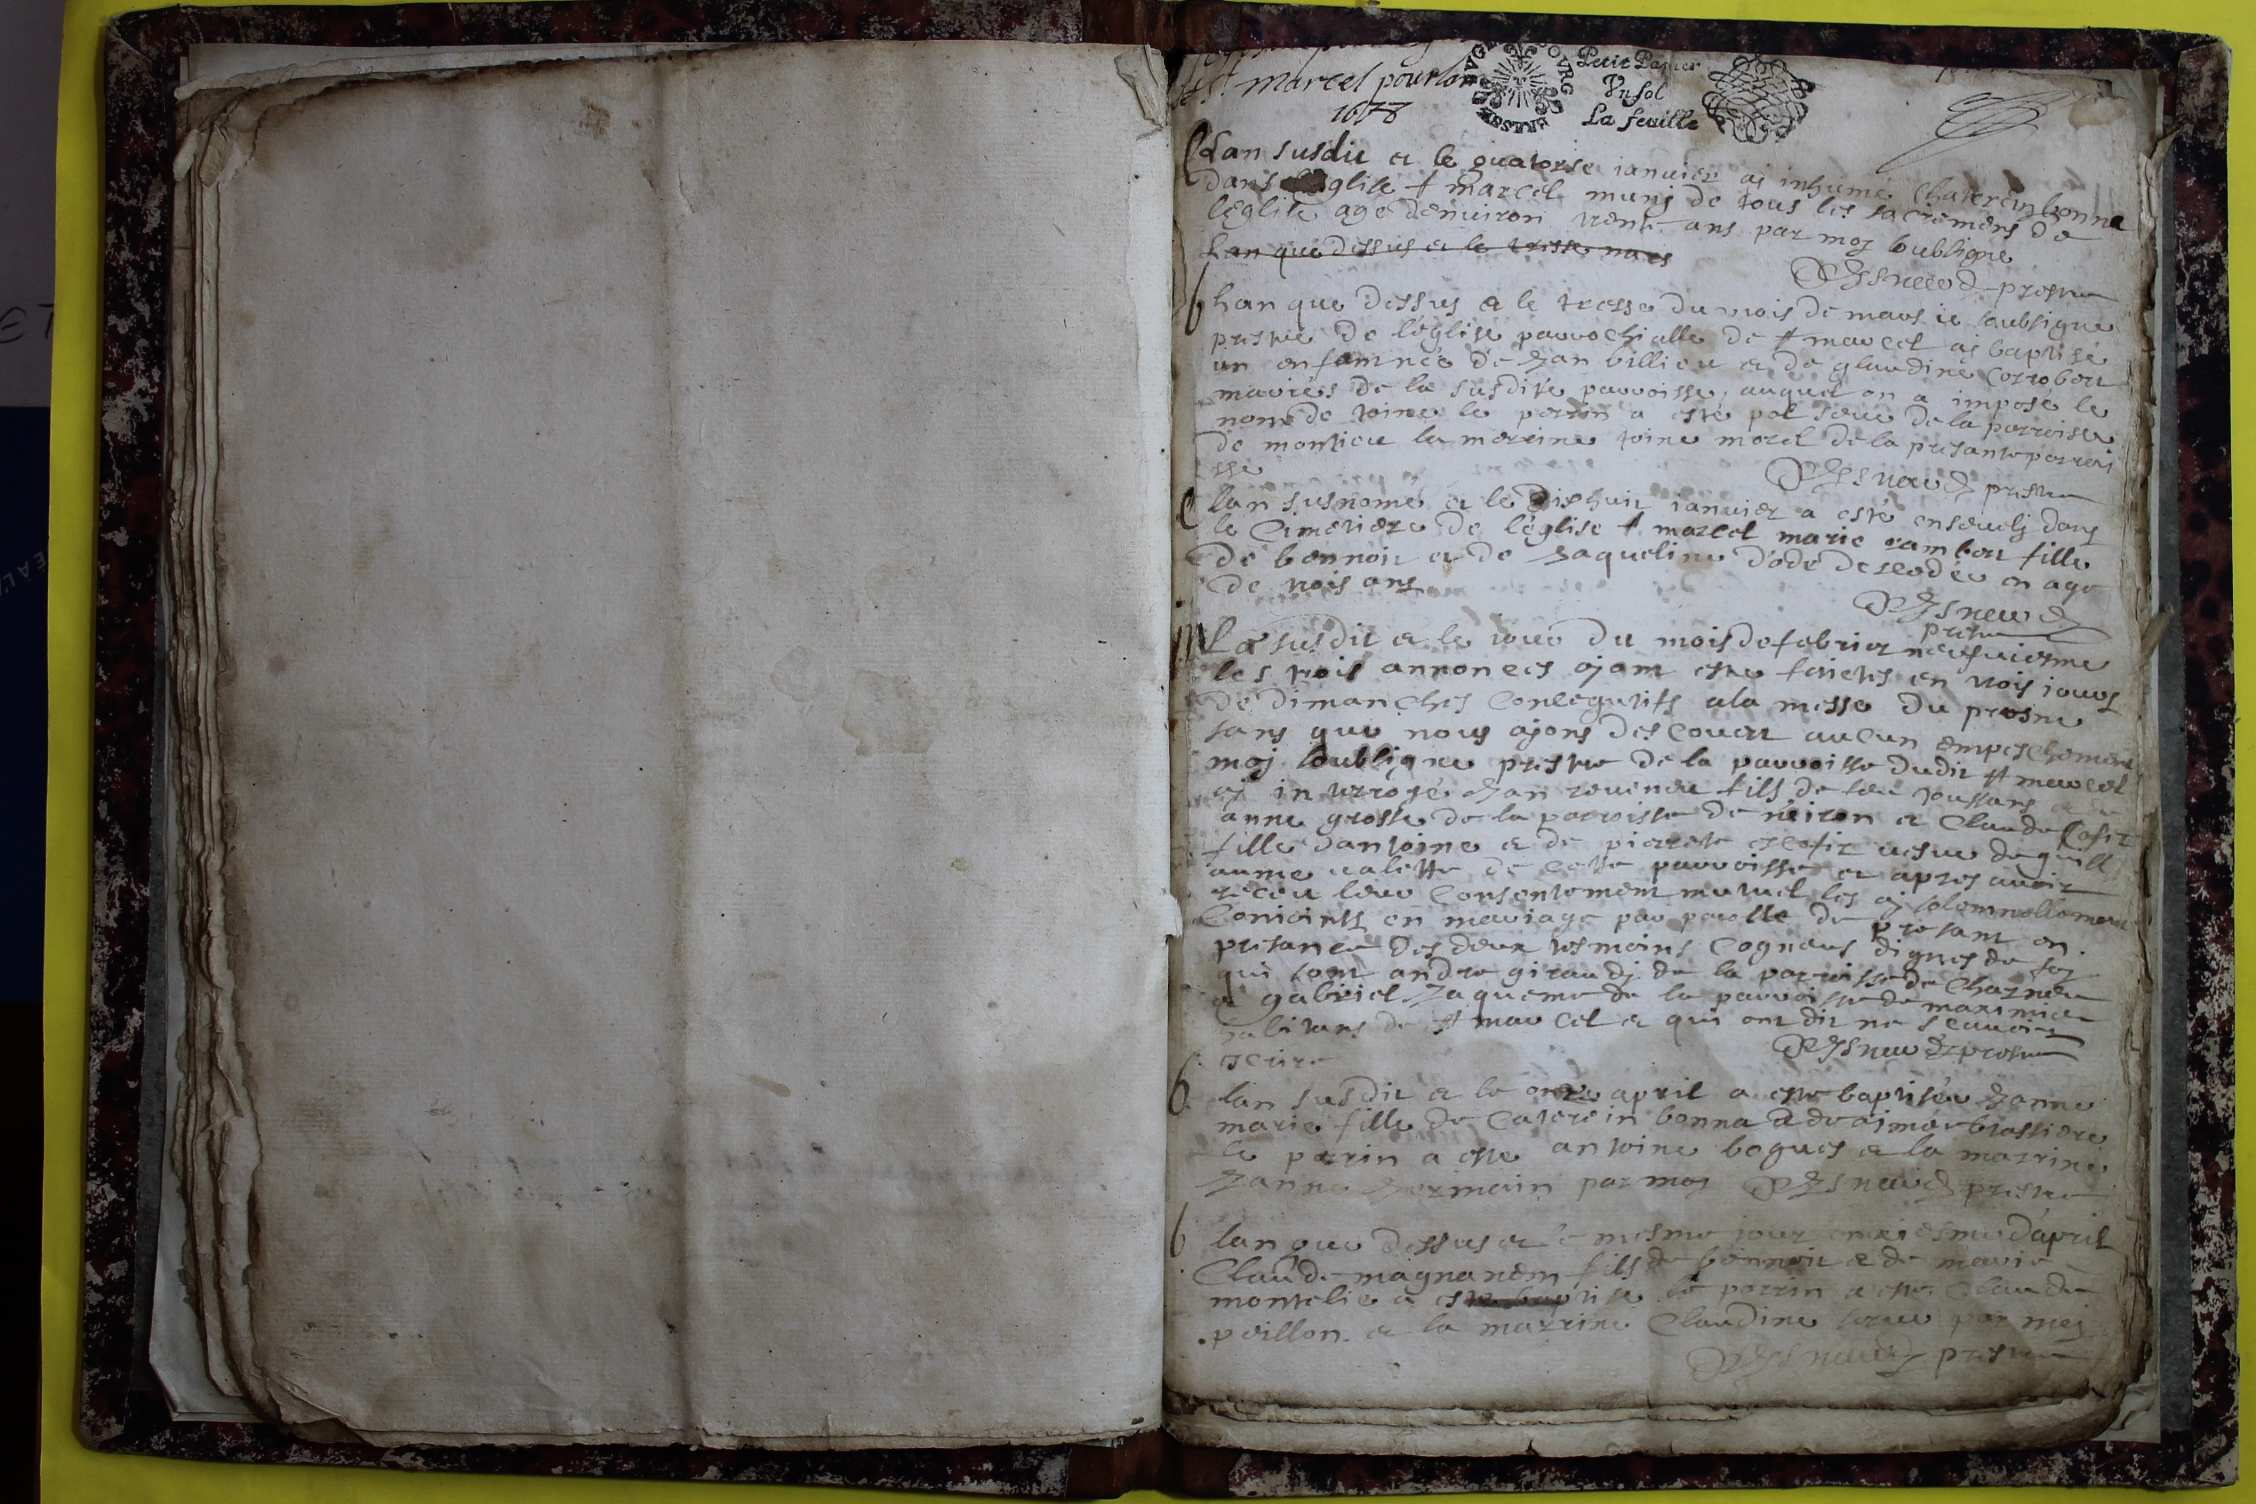 st marcel pour lan
1678
Petit Papier
Vn sol
La feuille
Lan susdit et le quatorse ianuier aj inhumé Caterein bonna
dans leglise st marcel munj de tous les sacremens de
leglise agé denuiron trente ans par moj soubsigne
prestre
Lan que dessus et le tresse mars
b lan que dessus et le tresse du mois de mars ie soubsigne
prestre de léglise parrochialle de st marcel aj baptisé
un enfant née de Jan billiou et de glaudine
mariés de la susdite parroisse, auquel on a imposé le
nom de toine le parrin a esté pol de la parroisse
de montieu la marrine toine morel de la presante parroi
sse
prestre
e lan susnomé et le dixhuit ianuier a esté enseuelj dans
le Cimetiere de léglise st marcel marie rambert fille
de bennoit et de Jaqueline en age
de trois ans
prestre
m Lan susdit et le du mois de febrier neufuiesme
les trois annonces ajant esté faictes en trois iours
de dimanches Consequtifs a la messe du prosne
sans que nous ajons descouert aucun empeschement
moj soubsigne prestre de la parroisse dudit st marcel
aj interrogé Jan fils de feu toussans et de
anne grosse de la parroisse de neiron et Claude Cofit
fille dantoine et de pierrete uefue de guill
aume ualette de cette parroisse et apres auoir
receu leur Consentement mutuel les aj solemnellement
Conioints en mariage par parolle de presant en
presance des deux tesmoins Cogneus dignes de foj
qui sont andre giraudj de la parroisse de Charnou
et gabriel Jaqueme de la parroisse de maximieu
habitans de st marcel et qui ont dit ne scauoir
escrire
prestre
b lan susdit et le onze april a esté baptisée Janne
marie fille de Caterein bonna et de aimée brassiere
le parrin a esté antoine bogues et la marrine
Janne Jermain par moj prestre
b lan que dessus et le mesme jour onziesme dapril
Claude magnanem fils de bennoit et de marie
montelie a esté baptise le parrin a esté Claude
poillon et la marrine Claudine par moj
prestre